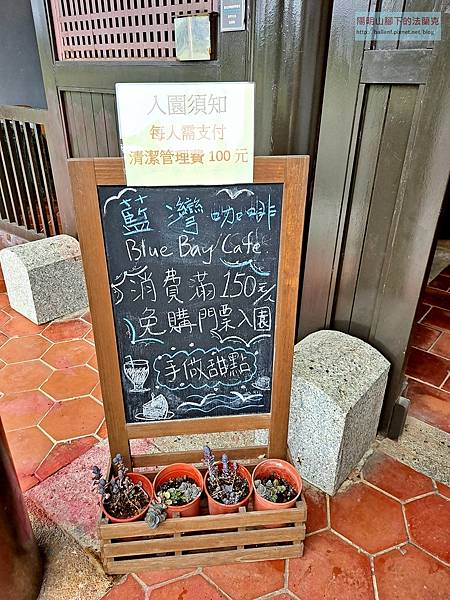 陽明山腳下的法蘭克
http://hallenf.pixnet.net/blog
入園須知
每人需支付
清潔管理費 100 元
藍灣咖啡
Blue Bay Cafe
消費滿150元
免購門票入園
手做甜點